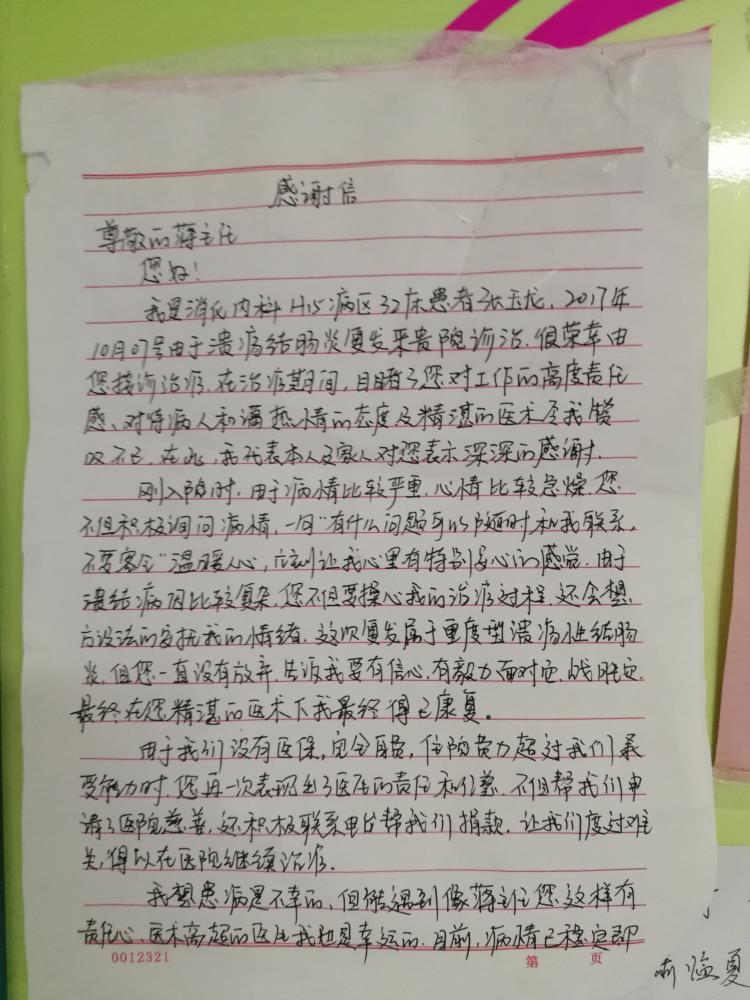 感谢信
尊敬的蒋主任
您好！
我是消化内科H15病区32床患者张玉龙，2017年
10月07号由于溃疡结肠炎复发来贵院诊治.很荣幸由
您接诊治疗.在治疗期间，目睹了您对工作的高度责任
感、对待病人和满热情的态度及精湛的医术令我赞
叹不已.在此，我代表本人及家人对您表示深深的感谢.
刚入院时.由于病情比较严重.心情比较急燥.您
不但积极询问病情，一句"有什么问题可以随时和我联系，
不要客气"温暖人心，立刻让我心里有特别安心的感觉.由于
溃结病因比较复杂.您不但要操心我的治疗过程.还会想
方设法的安抚我的情绪.这次复发属于重度型溃疡性结肠
炎.但您一直没有放弃.告诉我要有信心.有毅力面对它.战胜它.
最终在您精湛的医术下我最终得已康复。
由于我们没有医保，完全自费，住院费力超过我们承
受能力时.您再一次表现出了医生的责任和仁慈.不但帮我们申
请了医院慈善.还积极联系电台帮我们捐款.让我们度过难
关,得以在医院继续治疗.
我想患病是不幸的，但能遇到像蒋主任您这样有
责任心、医术高超的医生我也是幸运的.目前，病情已稳定即
0012321
第 页
临夏